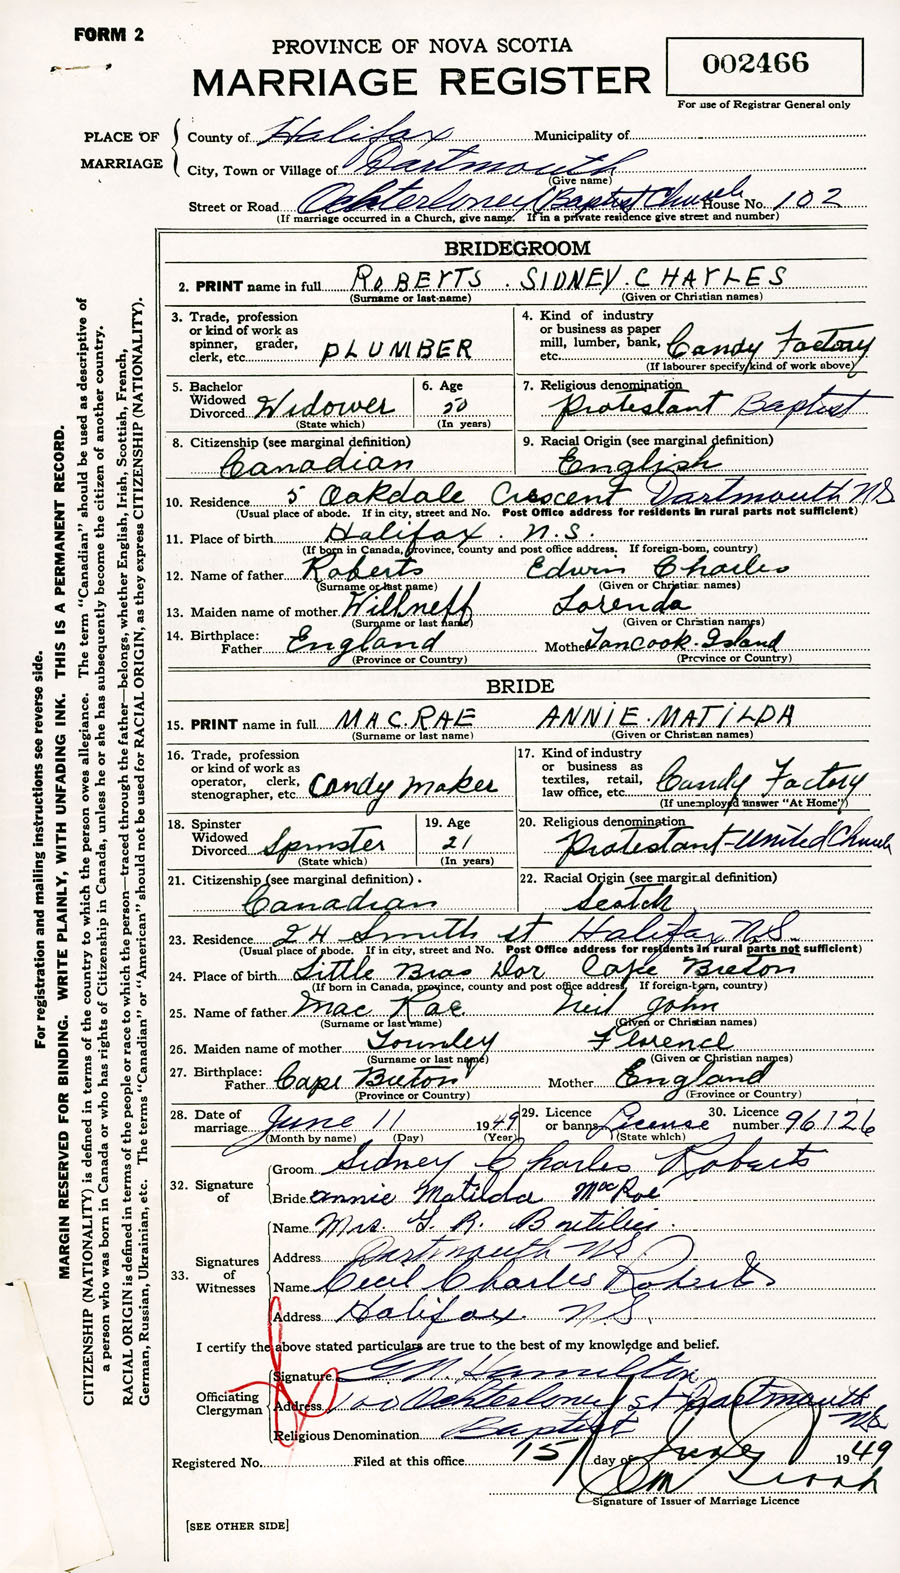 FORM 2
PROVINCE OF NOVA SCOTIA
MARRIAGE REGISTER
002466
For use of Registrar General only
PLACE OF MARRIAGE
County of Halifax Municipality of
City, Town or Village of Dartmouth
(Give name)
Street or Road Ochterloney (Baptist Church House No. 102
(If marriage occurred in a Church, give name. If in a private residence give street and number)
BRIDEGROOM
2. PRINT name in full ROBERTS. SIDNEY. CHARLES
(Surname or last name) (Given or Christian names)
3. Trade, profession or kind of work as spinner, grader, clerk, etc. PLUMBER
4. Kind of industry or business as paper mill, lumber, bank, etc. Candy Factory
(If labourer specify kind of work above)
5. Bachelor Widowed Divorced Widower
(State which)
6. Age 50
(In years)
7. Religious denomination
Protestant Baptist
8. Citizenship (see marginal definition)
Canadian
9. Racial Origin (see marginal definition)
English
10. Residence 5 Oakdale Crescent Dartmouth NS
(Usual place of abode. If in city, street and No. Post Office address for residents in rural parts not sufficient)
11. Place of birth Halifax. N.S.
(If born in Canada, province, county and post office address. If foreign-born, country)
12. Name of father Roberts Edwin Charles
(Surname or last name) (Given or Christian names)
13. Maiden name of mother Willneff Lorenda
(Surname or last name) (Given or Christian names)
14. Birthplace: Father England Mother Tancook Island
(Province or Country) (Province or Country)
BRIDE
15. PRINT name in full MAC.RAE ANNIE.MATILDA
(Surname or last name) (Given or Christian names)
16. Trade, profession or kind of work as operator, clerk, stenographer, etc. Candy Maker
17. Kind of industry or business as textiles, retail, law office, etc. Candy Factory
(If unemployed answer "At Home")
18. Spinster Widowed Divorced Spinster
(State which)
19. Age 21
(In years)
20. Religious denomination
Protestant-United Church
21. Citizenship (see marginal definition).
Canadian
22. Racial Origin (see marginal definition)
Scotch
23. Residence 24 Smith st Halifax N.S.
(Usual place of abode. If in city, street and No. Post Office address for residents in rural parts not sufficient)
24. Place of birth Little Bras Dor Cape Breton
(If born in Canada, province, county and post office address. If foreign-born, country)
25. Name of father Mac Rae Neil John
(Surname or last name) (Given or Christian names)
26. Maiden name of mother Townley Florence
(Surname or last name) (Given or Christian names)
27. Birthplace: Father Cape Breton Mother England
(Province or Country) (Province or Country)
28. Date of marriage June 11 1949
(Month by name) (Day) (Year)
29. Licence or banns License
(State which)
30. Licence number 96126
32. Signature of
Groom Sidney Charles Roberts
Bride Annie Matilda MacRae
33. Signatures of Witnesses
Name Mrs. G. R.
Address Dartmouth NS.
Name Cecil Charles Roberts
Address Halifax N.S.
I certify the above stated particulars are true to the best of my knowledge and belief.
Officiating Clergyman
Signature Hamilton
Address 100 Ochterloney st Dartmouth NS
Religious Denomination Baptist
Registered No. Filed at this office 15 day of June 1949
Signature of Issuer of Marriage Licence
[SEE OTHER SIDE]
For registration and mailing instructions see reverse side.
MARGIN RESERVED FOR BINDING. WRITE PLAINLY, WITH UNFADING INK. THIS IS A PERMANENT RECORD.
CITIZENSHIP (NATIONALITY) is defined in terms of the country to which the person owes allegiance. The term "Canadian" should be used as descriptive of
a person who was born in Canada or who has rights of Citizenship in Canada, unless he or she has subsequently become the citizen of another country.
RACIAL ORIGIN is defined in terms of the people or race to which the person—traced through the father—belongs, whether English, Irish, Scottish, French,
German, Russian, Ukrainian, etc. The terms "Canadian" or "American" should not be used for RACIAL ORIGIN, as they express CITIZENSHIP (NATIONALITY).